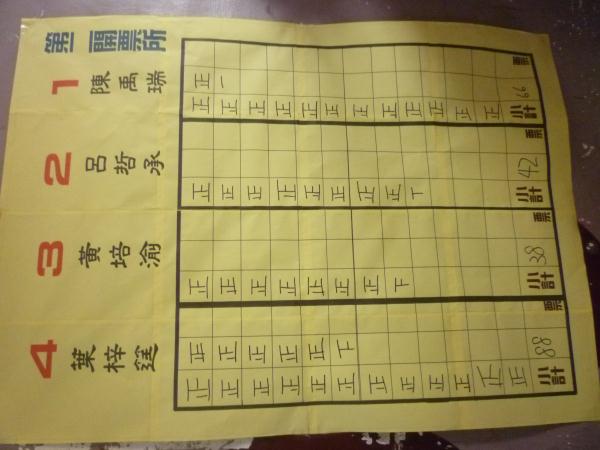 第一開票所
1 陳禹瑞
正正正正正正正正正正正正
正一
小計 66 票
2 呂哲承
正正正正正正正正丅
小計 42 票
3 黃培渝
正正正正正正正下
小計 38 票
4 葉梓筳
正正正正正正正正正正正正
正正正正正下
小計 88 票